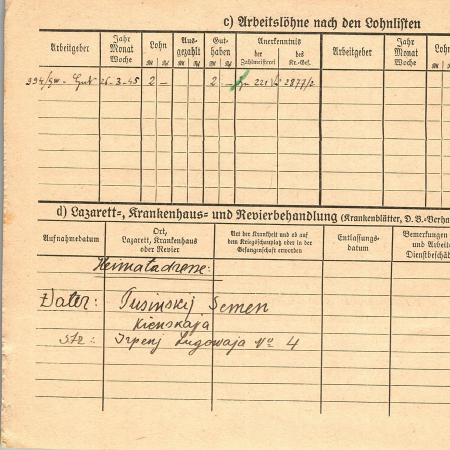 c) Arbeitslöhne nach den Lohnlisten
Arbeitgeber
Jahr
Monat
Woche
Lohn
Aus-
gezahlt
Gut-
haben
Anerkenntnis
der
Zahlmeisterei
des
Kr.-Gef.
Arbeitgeber
Jahr
Monat
Woche
Lohn
2 –
2 –
221
2877/2
d) Lazarett-, Krankenhaus- und Revierbehandlung (Krankenblätter, D. B.-Verha
Aufnahmedatum
Ort,
Lazarett, Krankenhaus
oder Revier
Art der Krankheit und ob auf
dem Kriegsschauplatz oder in der
Gefangenschaft erworben
Entlassungs-
datum
Bemerkungen
und Arbeits
Dienstbeschäd
Heimatadresse:
Vater: Pusinskij Semen
Kienskaja
str: Irpenj Lugowaja No 4